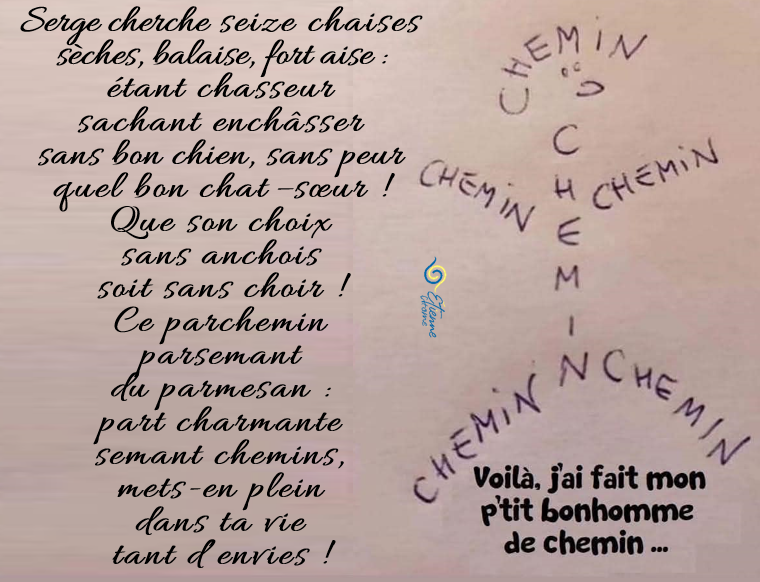 Serge cherche seize chaises
sèches, balaise, fort aise :
étant chasseur
sachant enchâsser
sans bon chien, sans peur
quel bon chat-sœur !
Que son choix
sans anchois
soit sans choir !
Ce parchemin
parsemant
du parmesan :
part charmante
semant chemins,
mets-en plein
dans ta vie
tant d'envies !
CHEMIN
CHEMIN
CHEMIN
CHEMIN
CHEMIN
CHEMIN
Etienne
Voilà, j'ai fait mon
p'tit bonhomme
de chemin ...